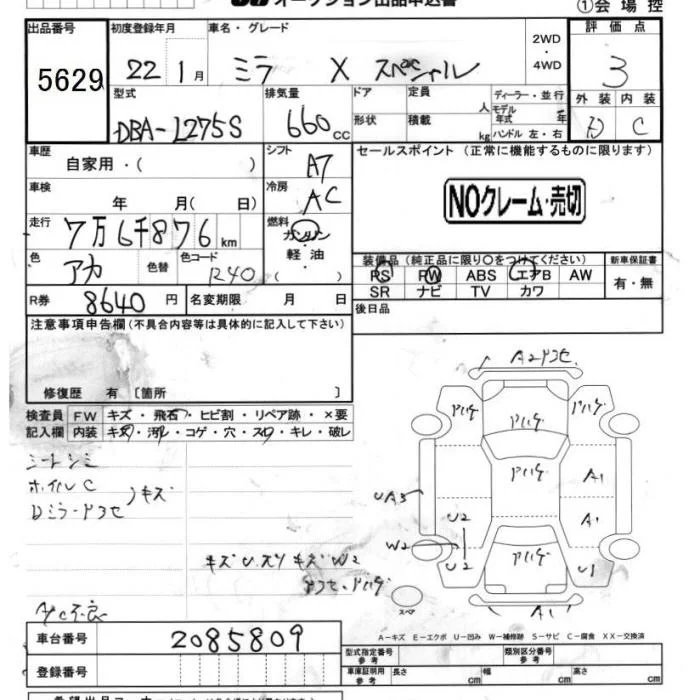 オークション出品申込書
①会場控
出品番号 初度登録年月 車名・グレード 評価点
5629 22 1月 ミラ X スペシャル 2WD ・ 4WD 3
型式 排気量 ドア 定員 人 ディーラー・並行 外装 内装
DBA-L275S 660 cc 形状 積載 kg モデル年式 年 ハンドル 左・右 D C
車歴 自家用・( ) シフト A7 セールスポイント (正常に機能するものに限ります)
車検 年 月( 日) 冷房 AC NOクレーム・売切
走行 7万6千876 km 燃料 ガソリン
色 アカ 色替 色コード R40 軽油 ・ ( )
装備品 (純正品に限り○をつけてください) 新車保証書
PS PW ABS エアB AW 有・無
SR ナビ TV カワ
R券 8640 円 名変期限 月 日 後日品
注意事項申告欄(不具合内容等は具体的に記入して下さい)
修復歴 有 〔箇所 〕
検査員 FW キズ・飛石・ヒビ割・リペア跡・×要
記入欄 内装 キズ・汚レ・コゲ・穴・スレ・キレ・破レ
シートシミ
ホイルC
キズ
Dミラーアセ
キズ U.スリ キズ W2
アセ・ハゲ
A/C不良
A2アセ
アハゲ アハゲ アハゲ
アハゲ A1
UA3
U2 A1
W2 U2 アハゲ U1
スペア A1
A-キズ E-エクボ U-凹み W-補修跡 S-サビ C-腐食 XX-交換済
車台番号 2085809
登録番号
型式指定番号 参考 類別区分番号 参考
車庫証明用 参考 長さ 幅 高さ cm cm cm